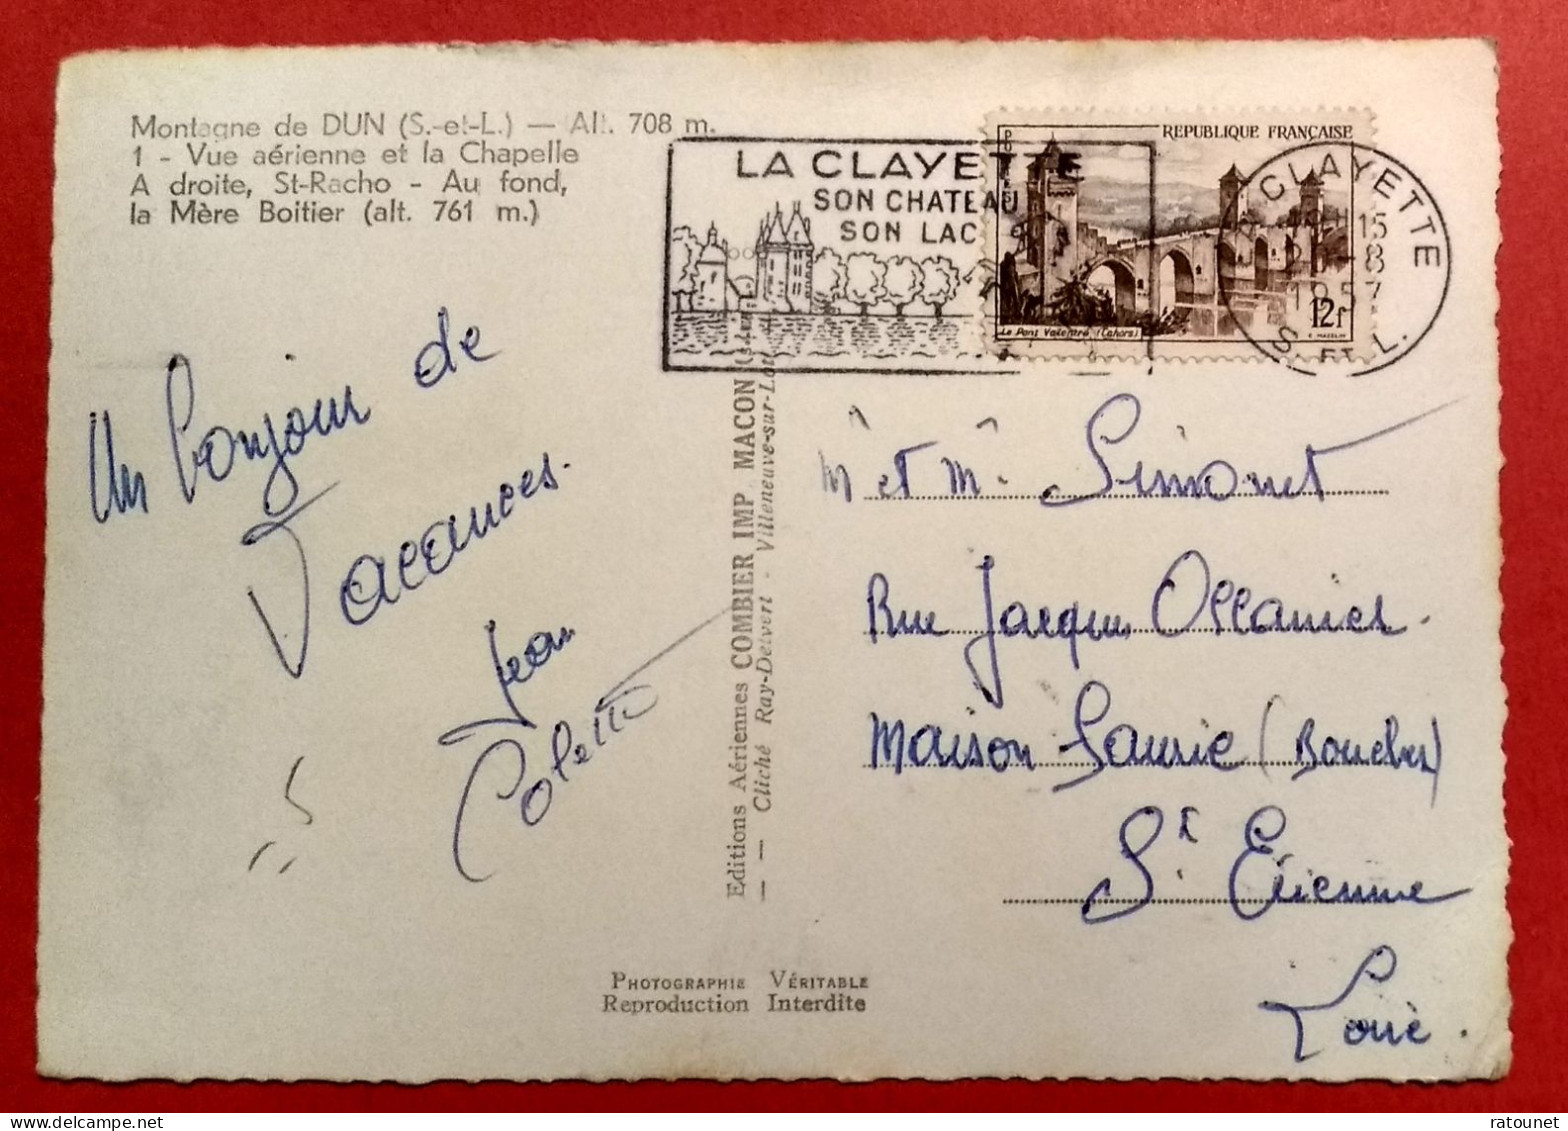 Montagne de DUN (S.-et-L.) — Alt. 708 m.
1 - Vue aérienne et la Chapelle
A droite, St-Racho - Au fond,
la Mère Boitier (alt. 761 m.)
LA CLAYETTE
SON CHATEAU
SON LAC
REPUBLIQUE FRANÇAISE
POSTES
Le Pont Valentré (Cahors)
12f
LA CLAYETTE
15
-8
1957
S. ET L.
Un bonjour de
Vacances.
Jean
Colette
Editions Aériennes COMBIER IMP. MACON
— — Cliché Ray-Delvert - Villeneuve-sur-Lot
M et M. Simonet
Rue Jacques
Maison (Boucher)
St Etienne
Loire.
PHOTOGRAPHIE VÉRITABLE
Reproduction Interdite
ratounet